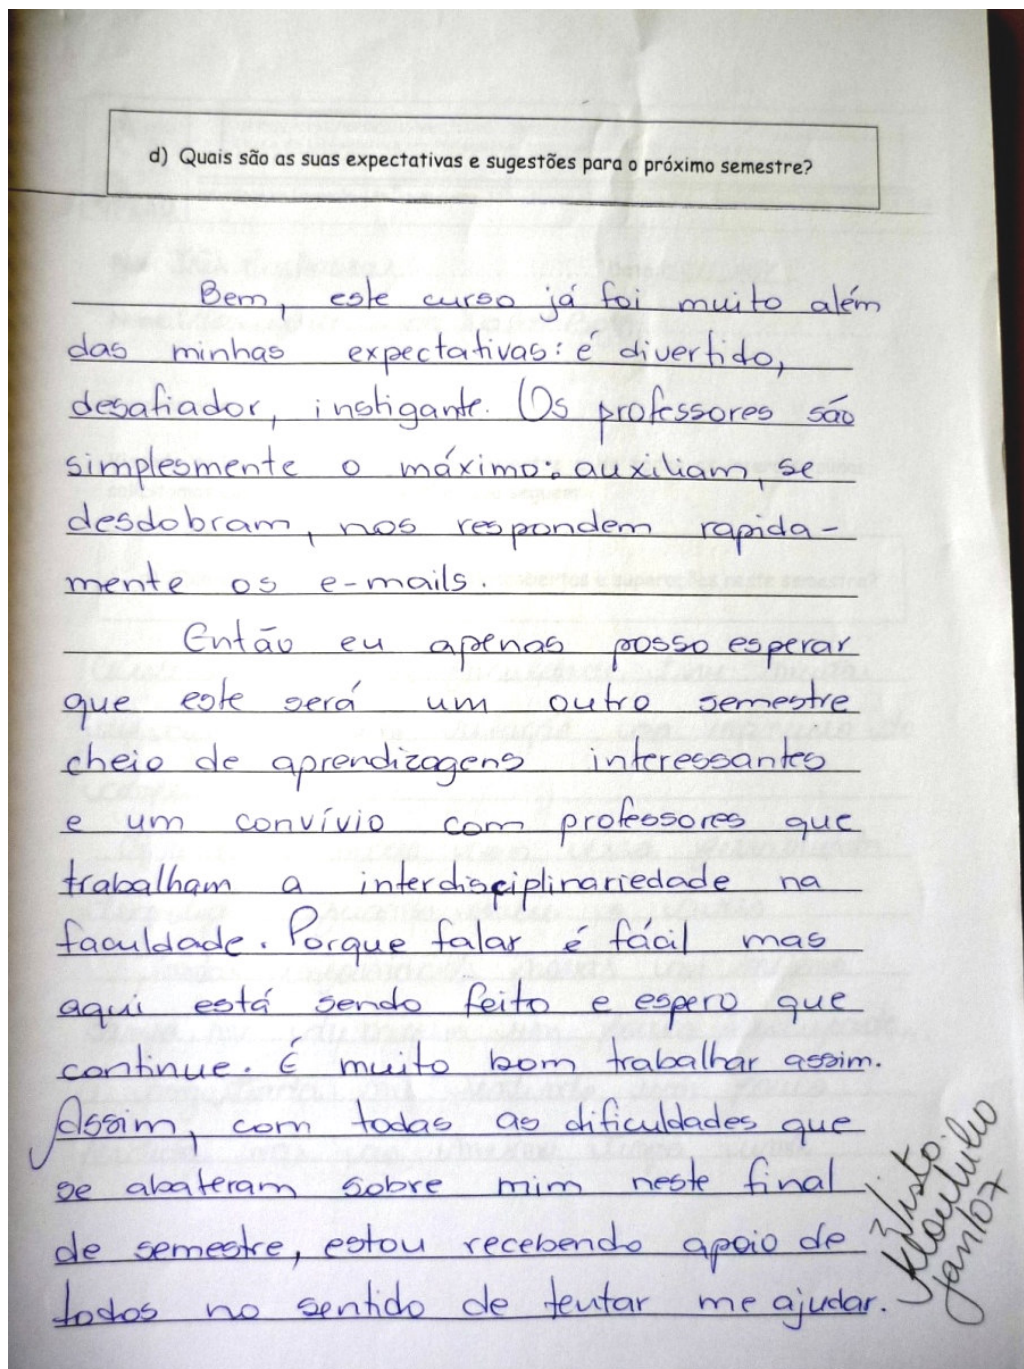 d) Quais são as suas expectativas e sugestões para o próximo semestre?
Bem, este curso já foi muito além
das minhas expectativas: é divertido,
desafiador, instigante. Os professores são
simplesmente o máximo: auxiliam, se
desdobram, nos respondem rapida-
mente os e-mails.
Então eu apenas posso esperar
que este será um outro semestre
cheio de aprendizagens interessantes
e um convívio com professores que
trabalham a interdisciplinariedade na
faculdade. Porque falar é fácil mas
aqui está sendo feito e espero que
continue. É muito bom trabalhar assim.
Assim, com todas as dificuldades que
se abateram sobre mim neste final
de semestre, estou recebendo apoio de
todos no sentido de tentar me ajudar.
Visto
jan/07